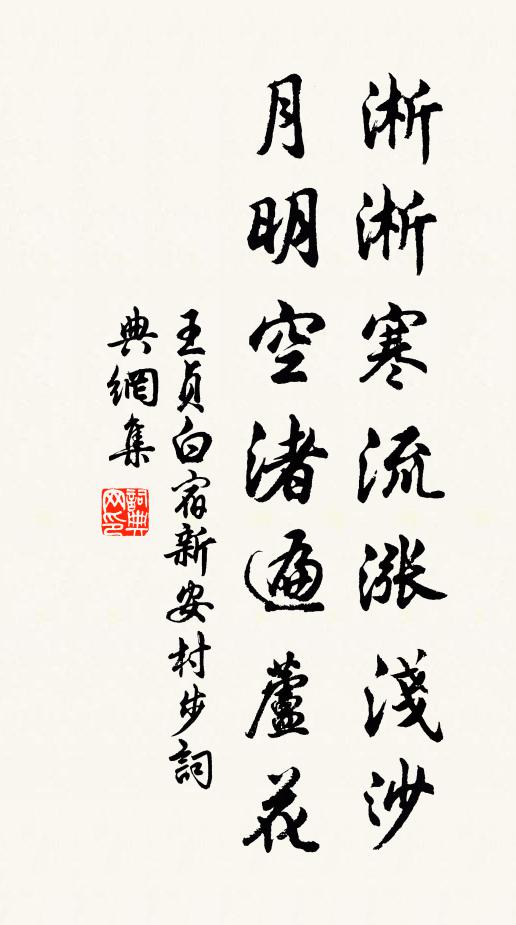 淅淅寒流漲淺沙
月明空渚遍蘆花
王貞白宿新安村步詞
典網集
詞典網印